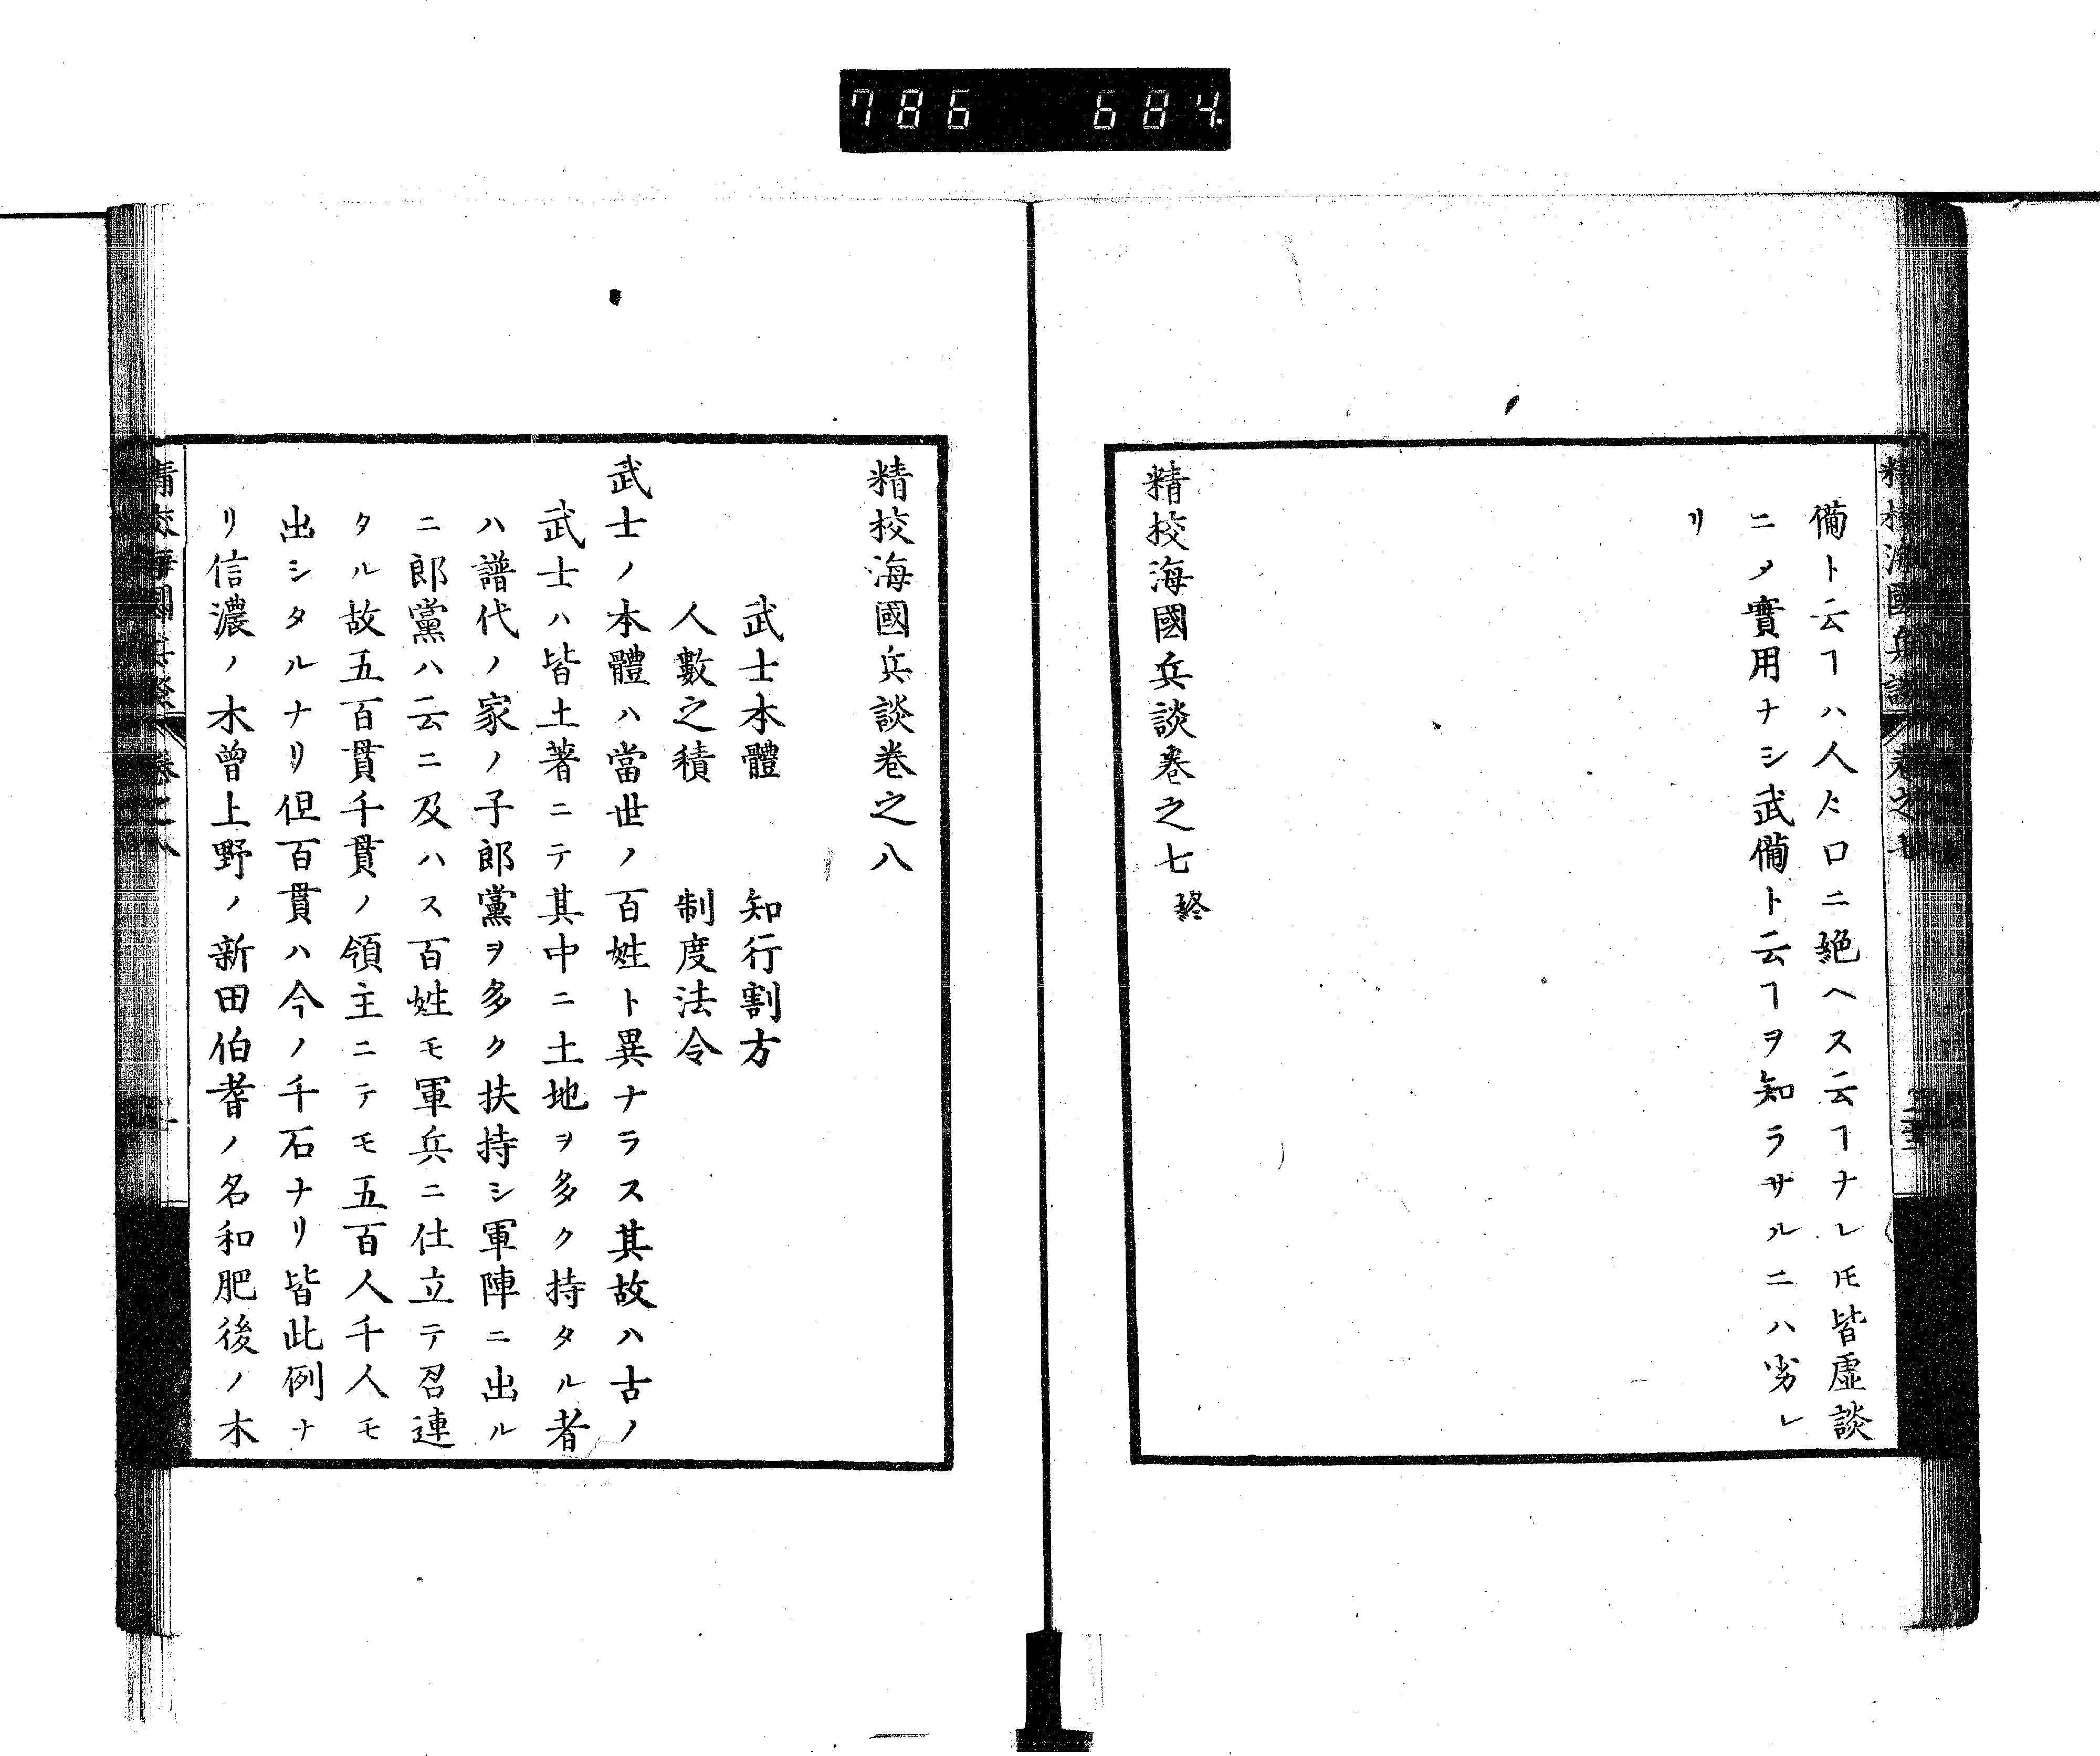 786 684
備ト云ヿハ人々口ニ絶ヘス云ヿナレ𪜈皆虚談
ニ乄實用ナシ武備ト云ヿヲ知ラサルニハ劣レ
リ
精挍海國兵談巻之七終
精挍海國兵談巻之八
武士本體　知行割方
人數之積　制度法令
武士ノ本體ハ當世ノ百姓ト異ナラス其故ハ古ノ
武士ハ皆土著ニテ其中ニ土地ヲ多ク持タル者
ハ譜代ノ家ノ子郎黨ヲ多ク扶持シ軍陣ニ出ル
ニ郎黨ハ云ニ及ハス百姓モ軍兵ニ仕立テ召連
タル故五百貫千貫ノ領主ニテモ五百人千人モ
出シタルナリ但百貫ハ今ノ千石ナリ皆此例ナ
リ信濃ノ木曾上野ノ新田伯耆ノ名和肥後ノ木